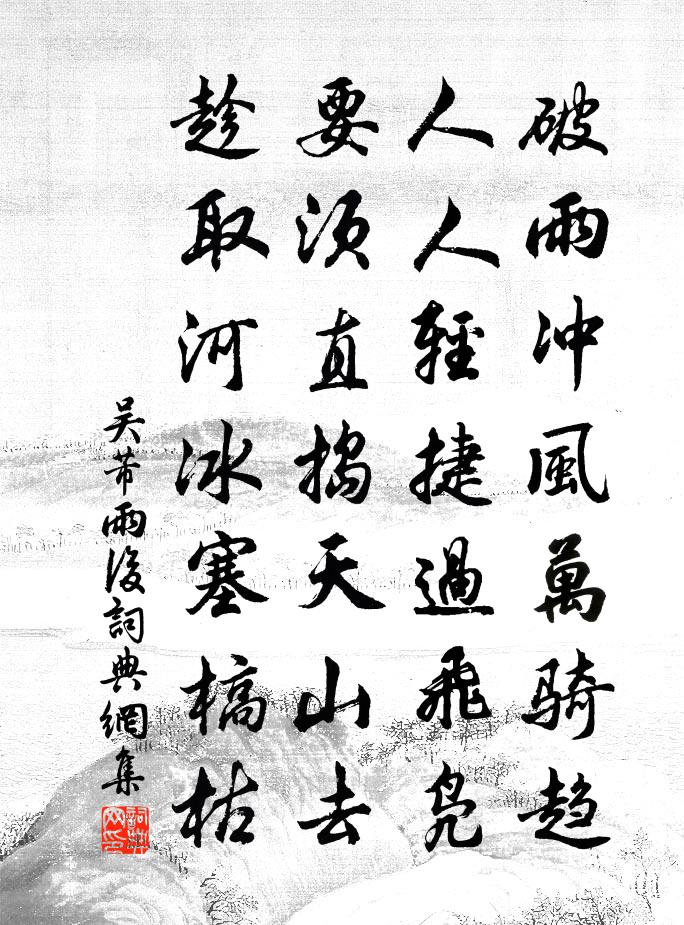 破雨冲風萬騎趋
人人輕捷過飛凫
要须直搗天山去
趁取河冰塞槁枯
吴芾雨後詞典網集
詞典网印